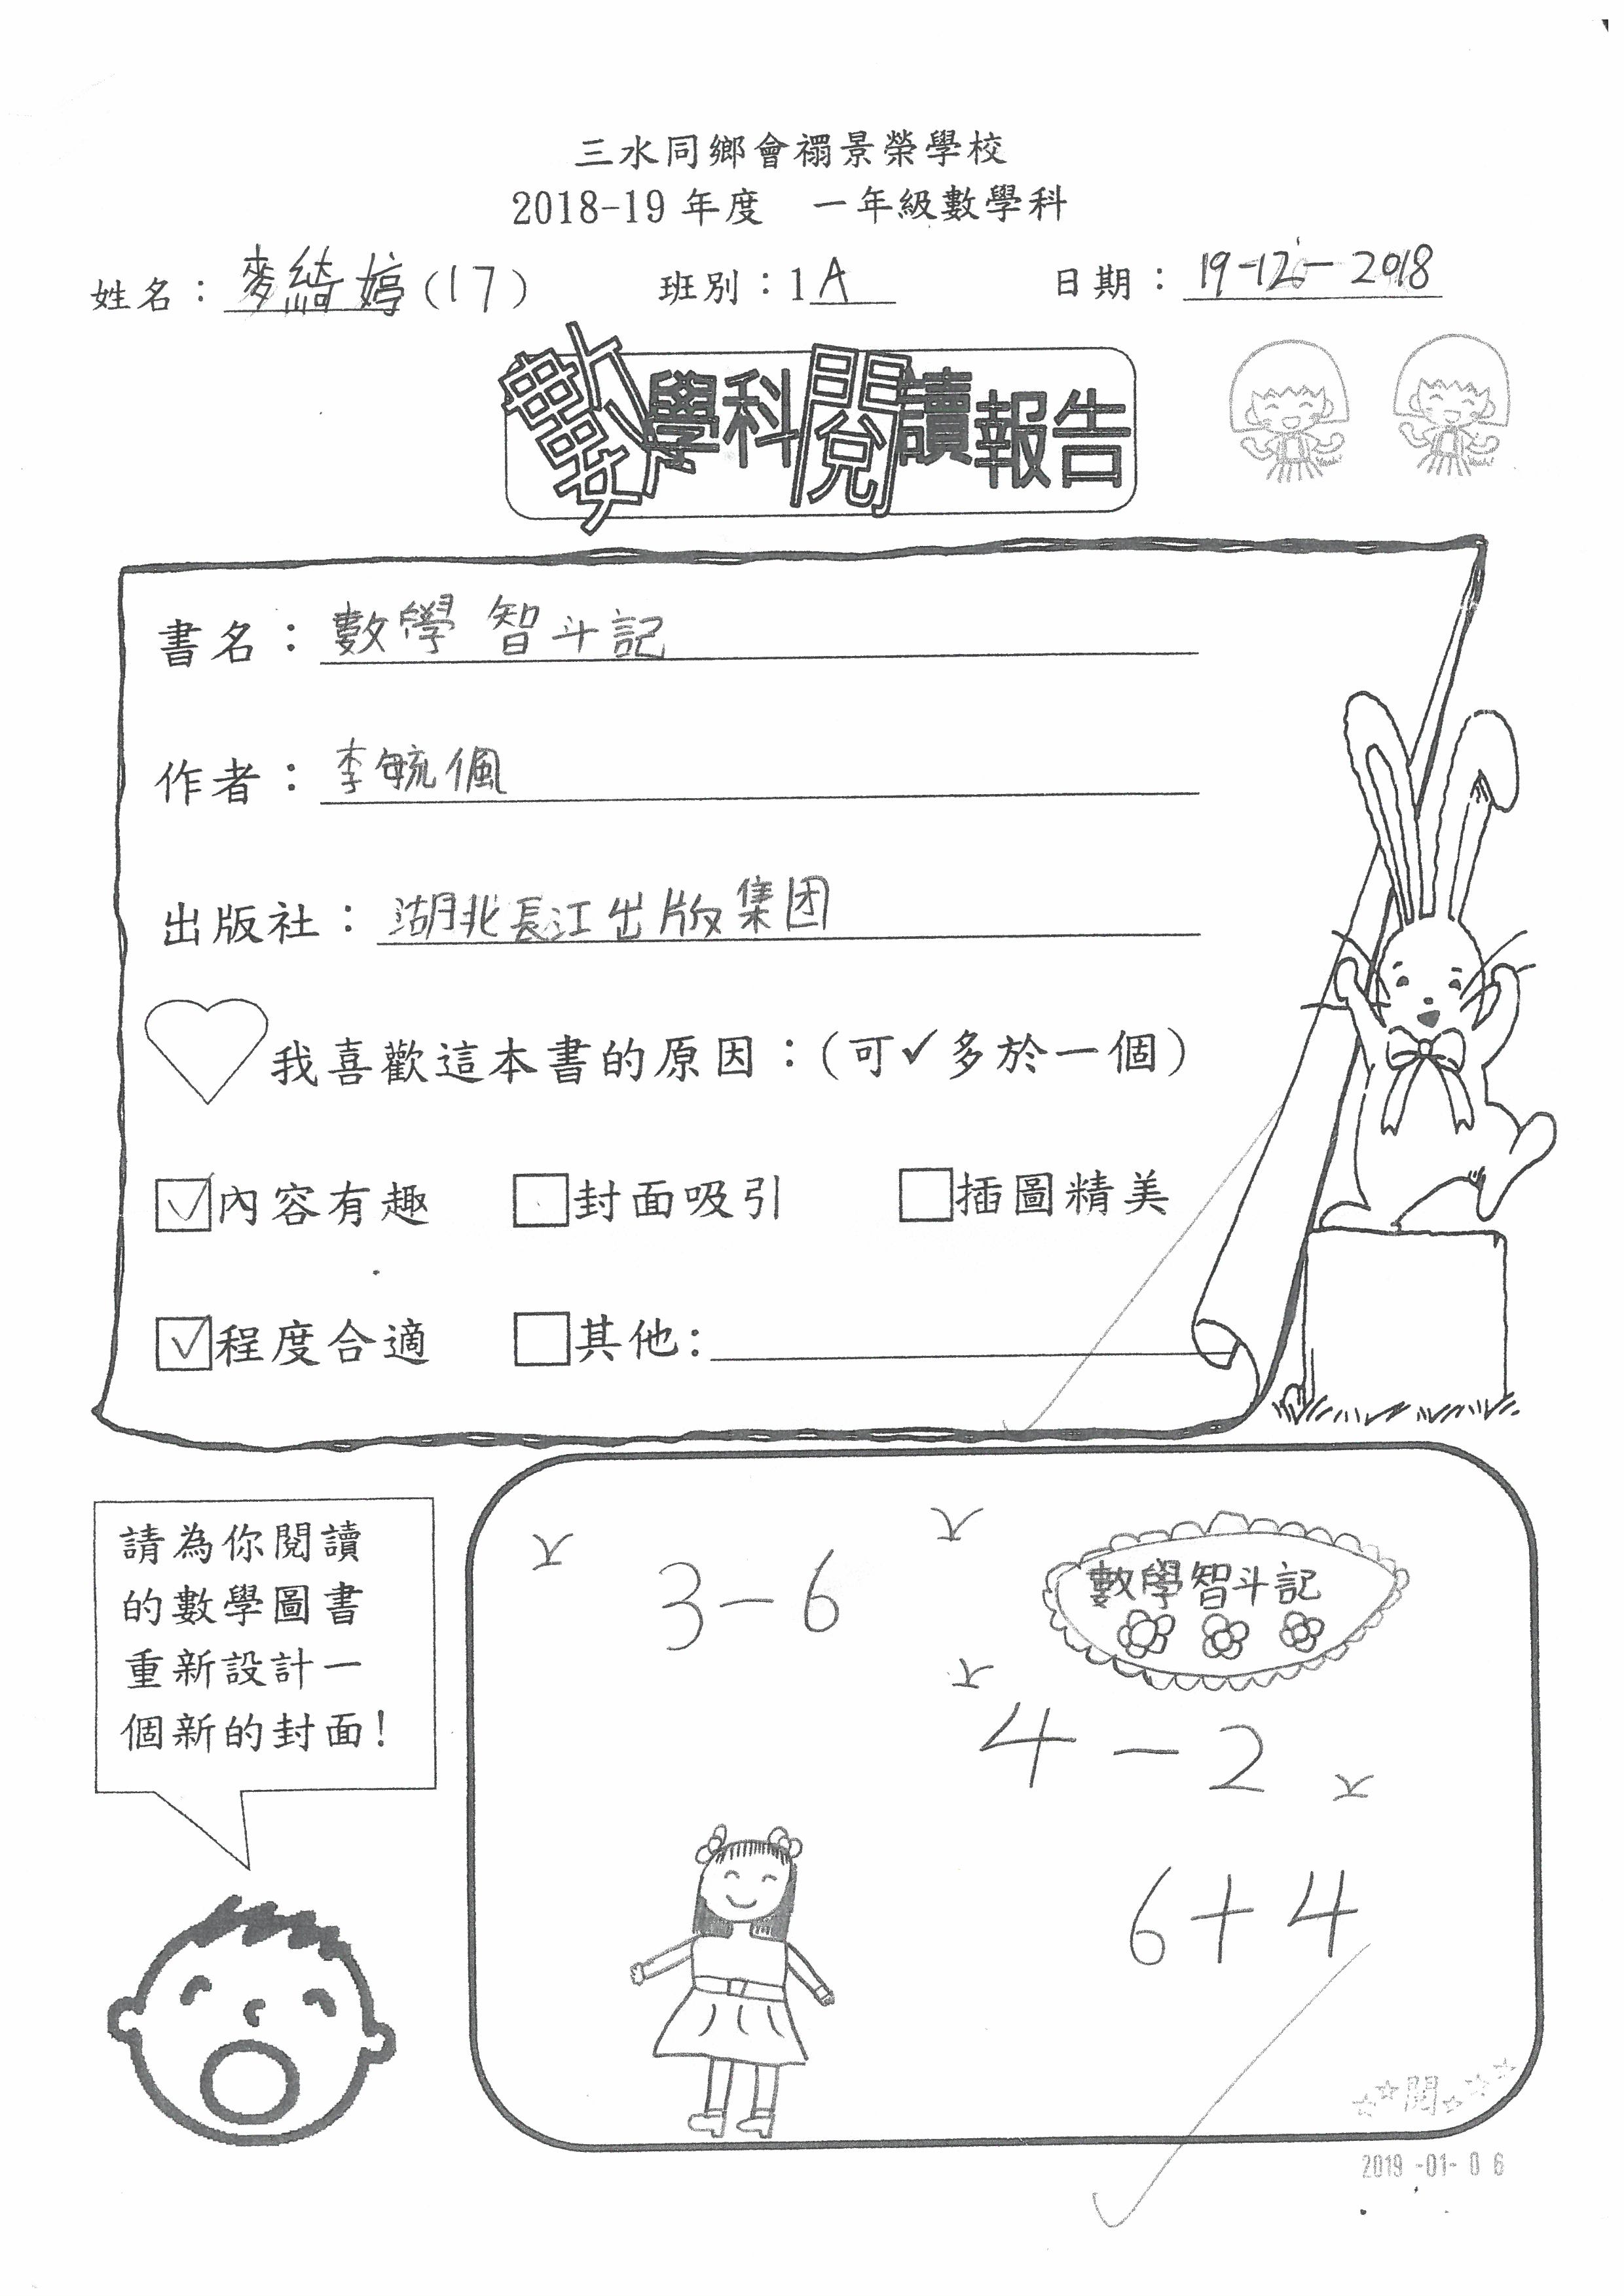 三水同鄉會禤景榮學校
2018-19 年度 一年級數學科
姓名：麥綺婷(17) 班別：1A 日期：19-12-2018
數學科閱讀報告
書名：數學智斗記
作者：李毓佩
出版社：湖北長江出版集团
我喜歡這本書的原因：(可✓多於一個)
☑內容有趣 □封面吸引 □插圖精美
☑程度合適 □其他:
請為你閱讀
的數學圖書
重新設計一
個新的封面!
3-6
數學智斗記
4-2
6+4
閱
2019-01-06